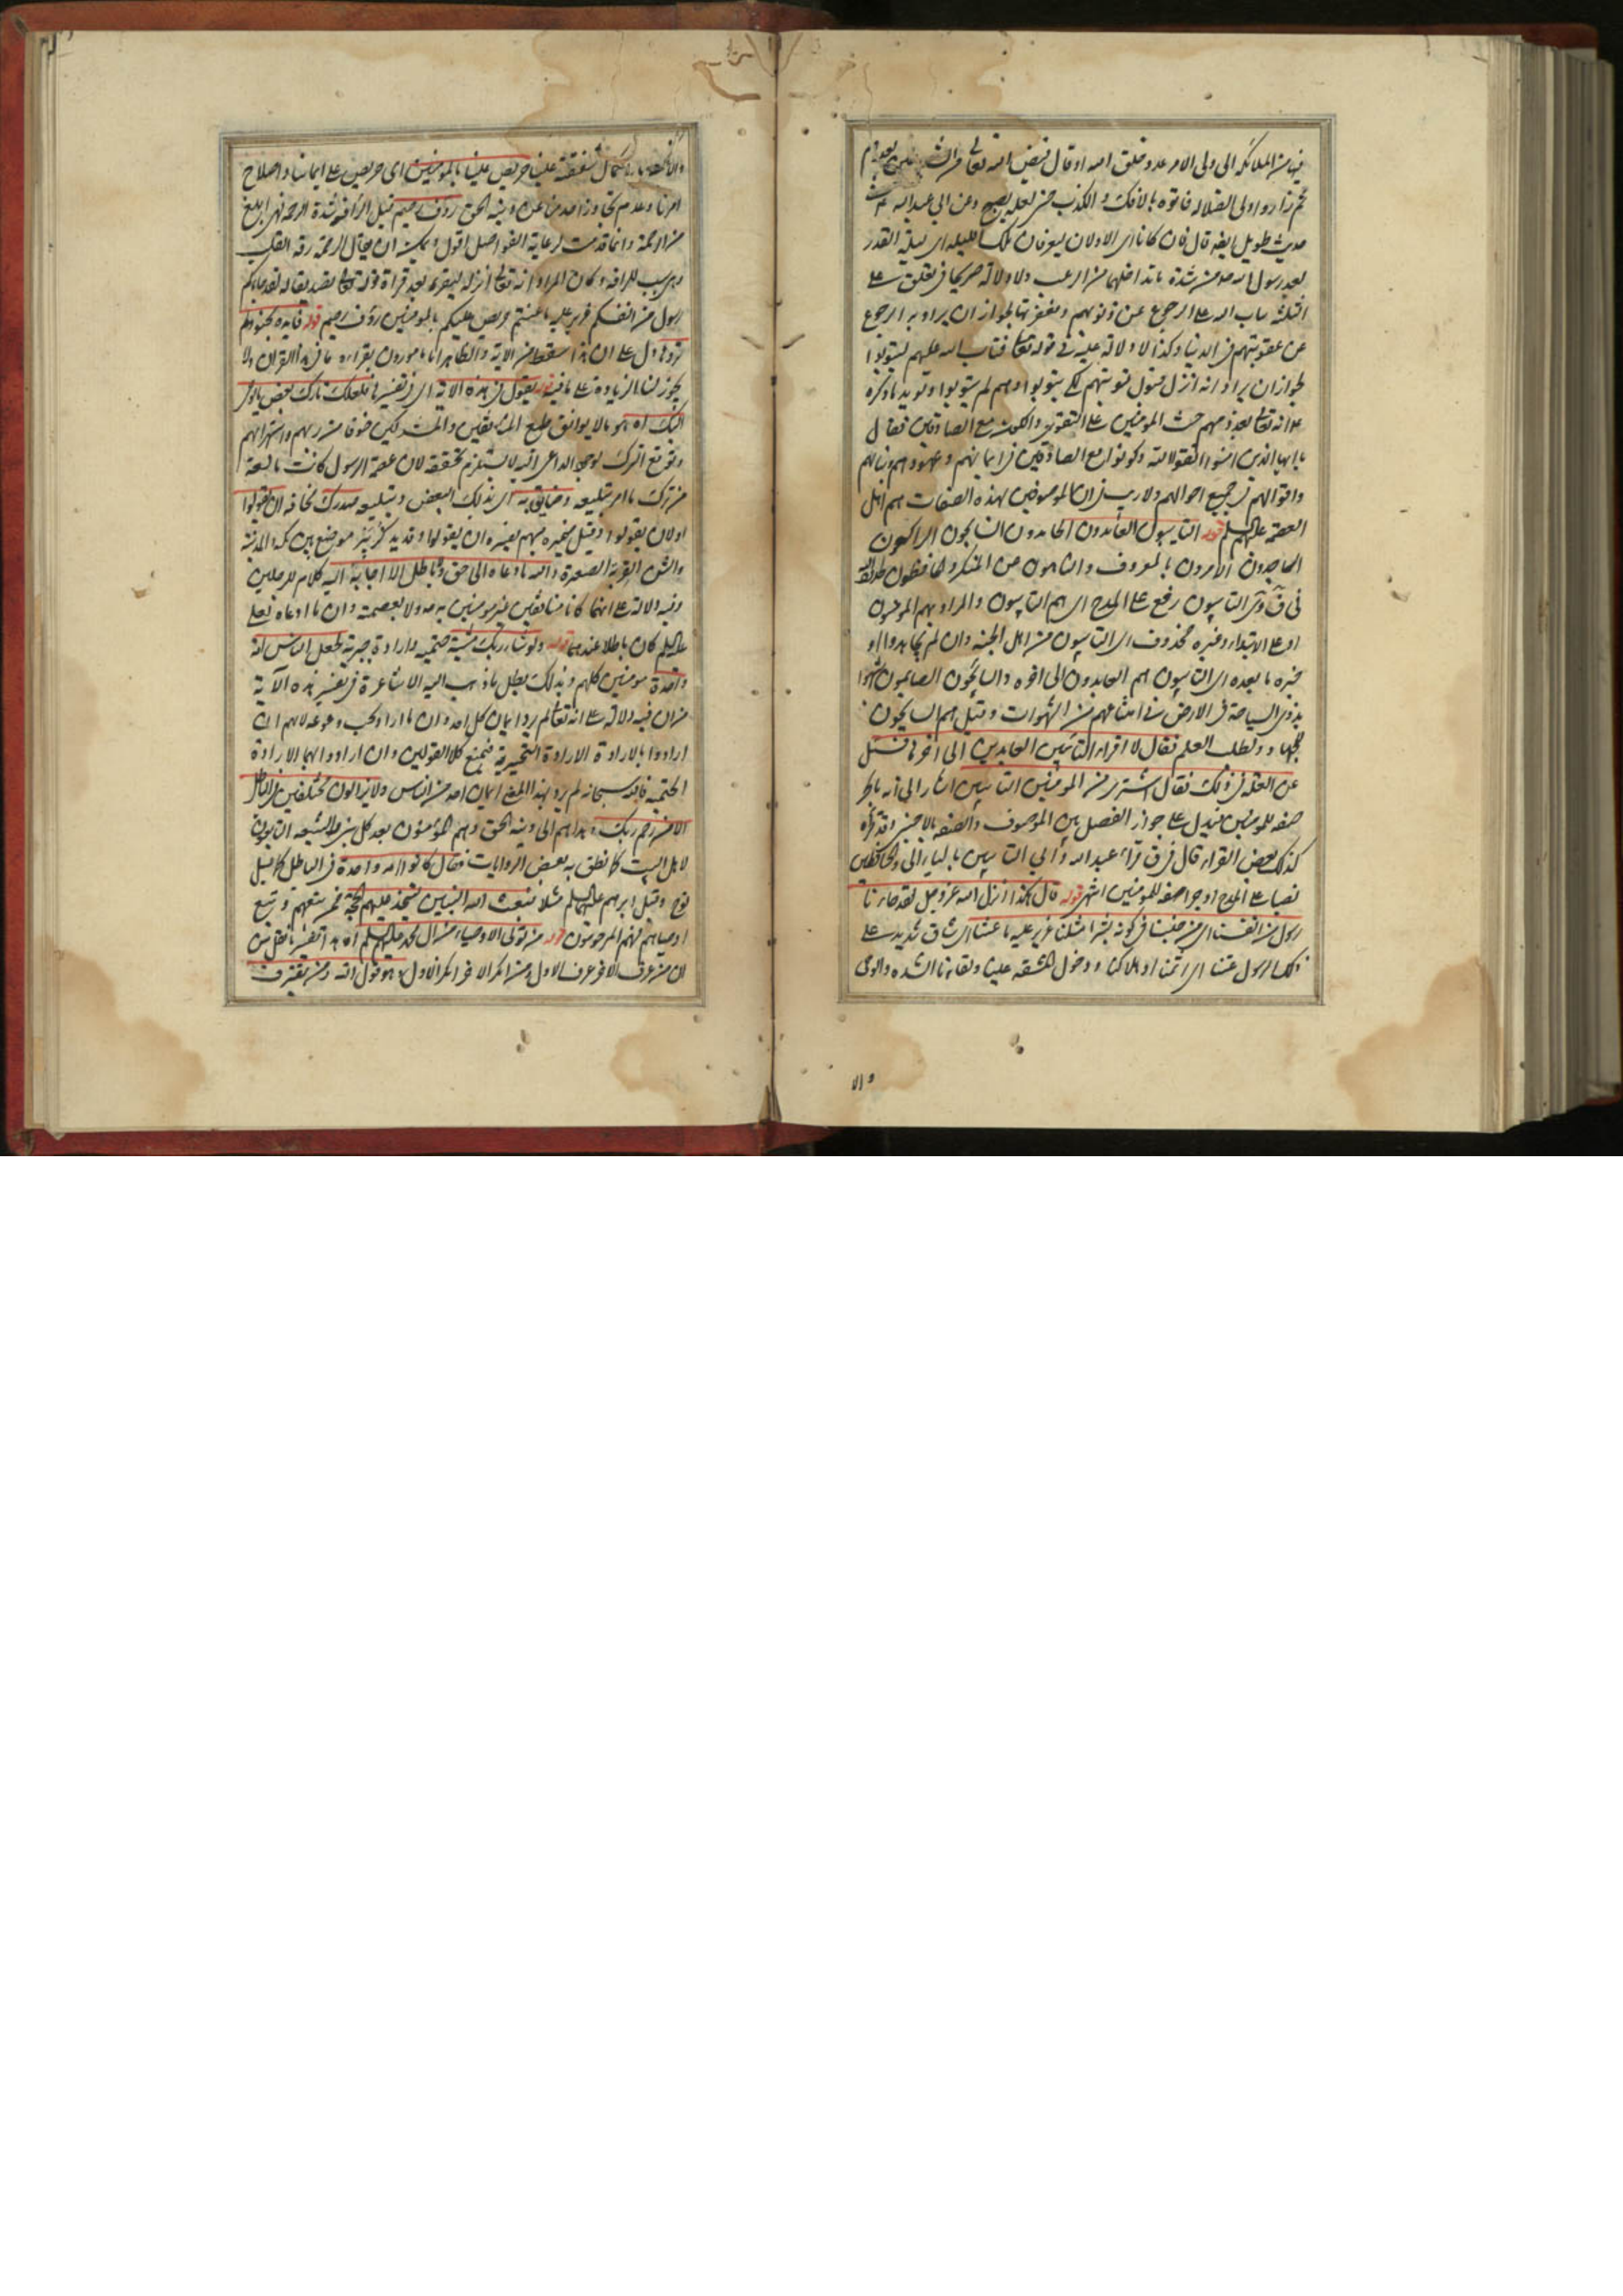 فيها من الملائكة الى ولى الامر عدد خلق الله او قال قيض الله تعالى من الشياطين بعددهم
ثم زاروا ولى الضلاله فاتوه بالافك والكذب حتى لعله يصبح وعن ابي عبد الله ع في
حديث طويل ايضه قال فان كانا اى الاولان ليعرفان تلك الليله اى ليلة القدر
بعد رسول الله ص من شدة ما تداخلهما من الرعب ولا دلالة صريحا في تعلق على
الثلثة تاب الله على الرجوع عن ذنوبهم ومغفرتها لجواز ان يراد به الرجوع
عن عقوبتهم في الدنيا وكذا لا دلالة عليه في قوله تعالى فتاب الله عليهم ليتوبوا
لجواز ان يراد انه انزل قبول توبتهم لكى يتوبوا وهم لم يتوبوا ويؤيد ما ذكره
انه تعالى بعد ذمهم حث المومنين على التقوى والكون مع الصادقين فقال
يا ايها الذين امنوا اتقوا الله وكونوا مع الصادقين في ايمانهم وعهودهم ونياتهم
واقوالهم في جميع احوالهم ولا ريب في ان الموصوفين بهذه الصفات هم اهل
العصمة عليهم السلم قوله التايبون العابدون الحامدون السايحون الراكعون
الساجدون الآمرون بالمعروف والناهون عن المنكر والحافظون لحدود الله
في ق وش التايبون رفع على المدح اى هم التايبون والمراد بهم المومنون
او على الابتداء وخبره محذوف اى التايبون من اهل الجنة وان لم يجاهدوا او
خبره ما بعده اى التايبون هم العابدون الى اخره والسايحون الصايمون شبهوا
بذوى السياحة في الارض في امتناعهم من الشهوات وقيل هم السايحون
للجهاد ولطلب العلم فقال لا اقرأ التائبين العابدين الى اخرها فسئل
عن العلة في ذلك فقال اشترى من المومنين التايبين اشار الى انه بالجر
صفه للمومنين فيدل على جواز الفصل بين الموصوف والصفه بالاجنبى وقد قرأه
كذلك بعض القراء قال في ق قرأ عبد الله وأبي التايبين بالياء الى والحافظين
نصبا على المدح او جرا صفه للمومنين اشهر قوله قال هكذا انزل الله عز وجل لقد جاءنا
رسول من انفسنا اى من جنسنا في كونه بشرا مثلنا عزيز عليه ما عنتنا اى شاق شديد على
ذلك الرسول عنتنا اى اثمنا او هلاكنا ودخول المشقه علينا ولقاءنا الشده والوهى
والا
والانكسار لكمال شفقته علينا حريص علينا بالمومنين اى حريص على ايماننا واصلاح
امرنا وعدم تجاوز احد منا عن دينه الحق رؤف رحيم قيل الرأفه شدة الرحمه فهى ابلغ
من الرحمة وانما قدمت لرعاية الفواصل اقول ويمكن ان يقال الرحمة رقة القلب
وهى سبب للرافه وكان المراد انه تعالى انزله ليقرء بعد قراءة قوله تعالى لقد جاءكم
رسول من انفسكم عزيز عليه ما عنتم حريص عليكم بالمومنين رؤف رحيم قوله فايده بجنود لم
تروها دل على ان هذا سقط من الاية والظاهر انا مامورون بقراءة ما في هذا القران ولا
يجوز لنا الزيادة على ما فيه قوله يقول في هذه الاية اى في تفسيرها فلعلك تارك بعض ما يوحى
اليك اه هو ما لا يوافق طبع المنافقين والمشركين خوفا من ردهم واستهزائهم
وتوقع الترك لوجود الداعى اليه لا يستلزم تحققه لان عصمة الرسول كانت مانعة
من ترك ما امر بتبليغه وضائق به اى بذلك البعض وتبليغه صدرك مخافه ان يقولوا
اولان يقولوا وقيل ضميره مبهم يفسره ان يقولوا
والشن القربة الصغيرة والله ما دعاه الى حق ولا باطل الا اجابه اليه كلام للرجلين
وفيه دلالة على انهما كانا منافقين غير مومنين به ص ولا بعصمته وان ما ادعاه لعلى
عليه السلم كان باطلا عندهما قوله ولو شاء ربك مشية حتميه وارادة جبرية لجعل الناس امة
واحدة مومنين كلهم وبذلك يبطل ما ذهب اليه الاشاعرة في تفسير هذه الآية
من ان فيه دلالة على انه تعالى لم يرد ايمان كل احد وان ما اراد يجب وقوعه لانهم ان
ارادوا بالارادة الارادة التخييرية فنمنع كلا القولين وان ارادوا بها الارادة
الحتميه فالله سبحانه لم يرد بهذا المعنى ايمان احد من الناس ولا يزالون مختلفين في الباطل
الا من رحم ربك وهداهم الى دينه الحق وهم المؤمنون بعد كل نبى والشيعه التابعون
لاهل البيت كما نطق به بعض الروايات فقال كانوا امة واحدة في الباطل كما قيل
نوح وقيل ابرهيم عليهما السلم مثلا فبعث الله النبيين ليتخذ عليهم الحجة فمن يتبعهم ويتبع
اوصياهم فهم المرحومون قوله من تولى الاوصياء من ال محمد عليهم السلم اه هذا تفسير باطنى
لان من عرف الآخر عرف الاول ومن انكر الاخر انكر الاول وهو قول الله ومن يقترف